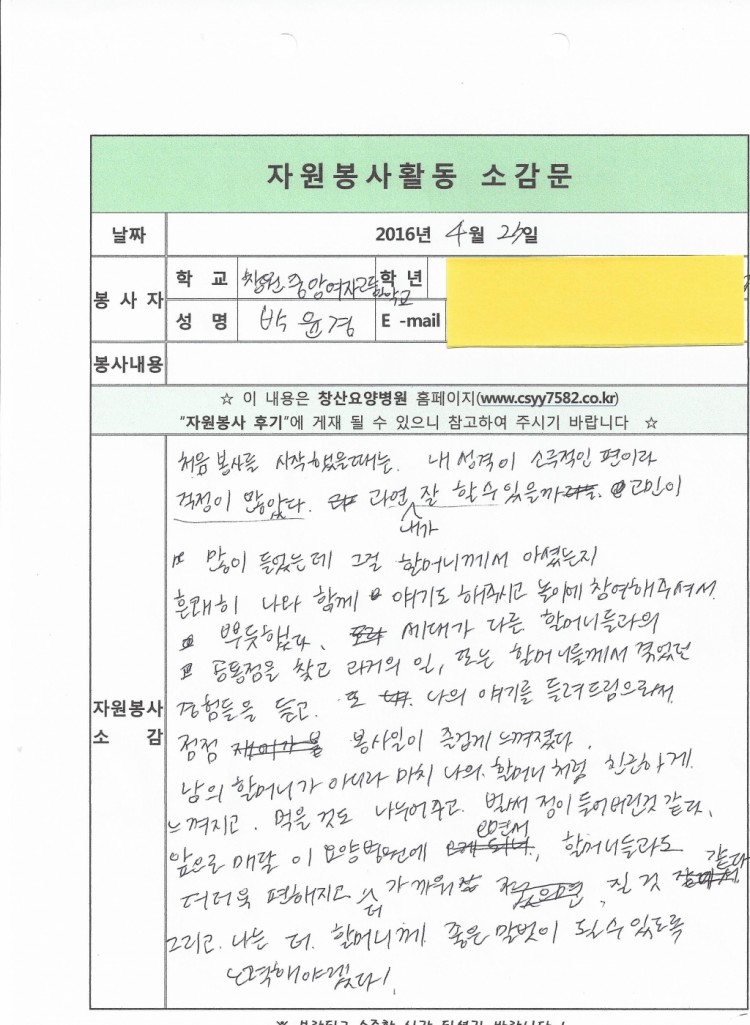 자원봉사활동 소감문
날짜 2016년 4월 23일
봉사자 학 교 창원중앙여자고등학교 학 년
성 명 박윤경 E -mail
봉사내용
☆ 이 내용은 창산요양병원 홈페이지(www.csyy7582.co.kr)
"자원봉사 후기"에 게재 될 수 있으니 참고하여 주시기 바랍니다 ☆
자원봉사 소 감
처음 봉사를 시작했을때는. 내 성격이 소극적인 편이라
걱정이 많았다. 과연 내가 잘 할 수 있을까 고민이
많이 들었는데 그걸 할머니께서 아셨는지
흔쾌히 나와 함께 얘기도 해주시고 놀이에 참여해주셔서
뿌듯했다. 세대가 다른 할머니들과의
공통점을 찾고 과거의 일, 또는 할머니들께서 겪었던
경험들을 듣고. 또 나의 얘기를 들려드림으로써
점점 봉사일이 즐겁게 느껴졌다.
남의 할머니가 아니라 마치 나의 할머니처럼 친근하게
느껴지고. 먹을 것도 나누어주고. 벌써 정이 들어버린것 같다.
앞으로 매달 이 요양병원에 오면서, 할머니들과도
더더욱 편해지고 더 가까워 질 것 같다
그리고. 나는 더. 할머니께 좋은 말벗이 될 수 있도록
노력해야겠다!